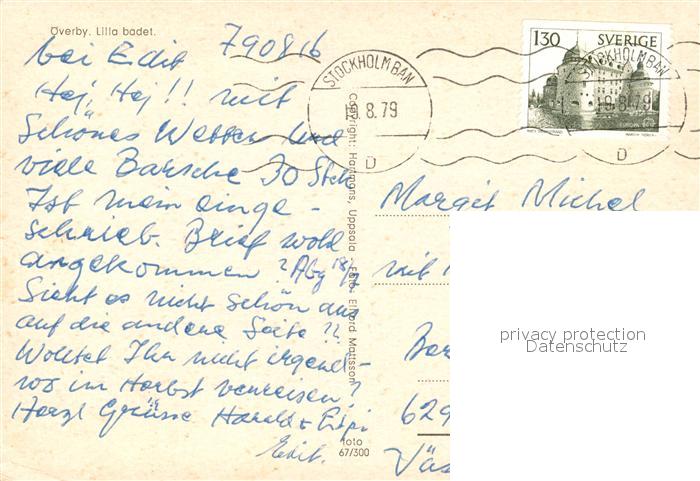 Överby. Lilla badet.
bei Edit 790816
Hej, Hej!! mit
Schönes Wetter und
viele Barsche 30 Stck
Ist mein einge-
schrieb. Brief wohl
angekommen? Abg 18/7
Sieht es nicht schön aus
auf die andere Seite??
Wolltet Ihr nicht irgend-
wo im Herbst verreisen?
Herzl Grüsse Harald +
Edit.
Copyright: Hartmans, Uppsala. Foto: Edvard Mattsson
foto
67/300
130 SVERIGE
STOCKHOLM BAN
8.79
D
STOCKHOLM BAN
8.79
D
Margit Michel
mit
629
privacy protection
Datenschutz